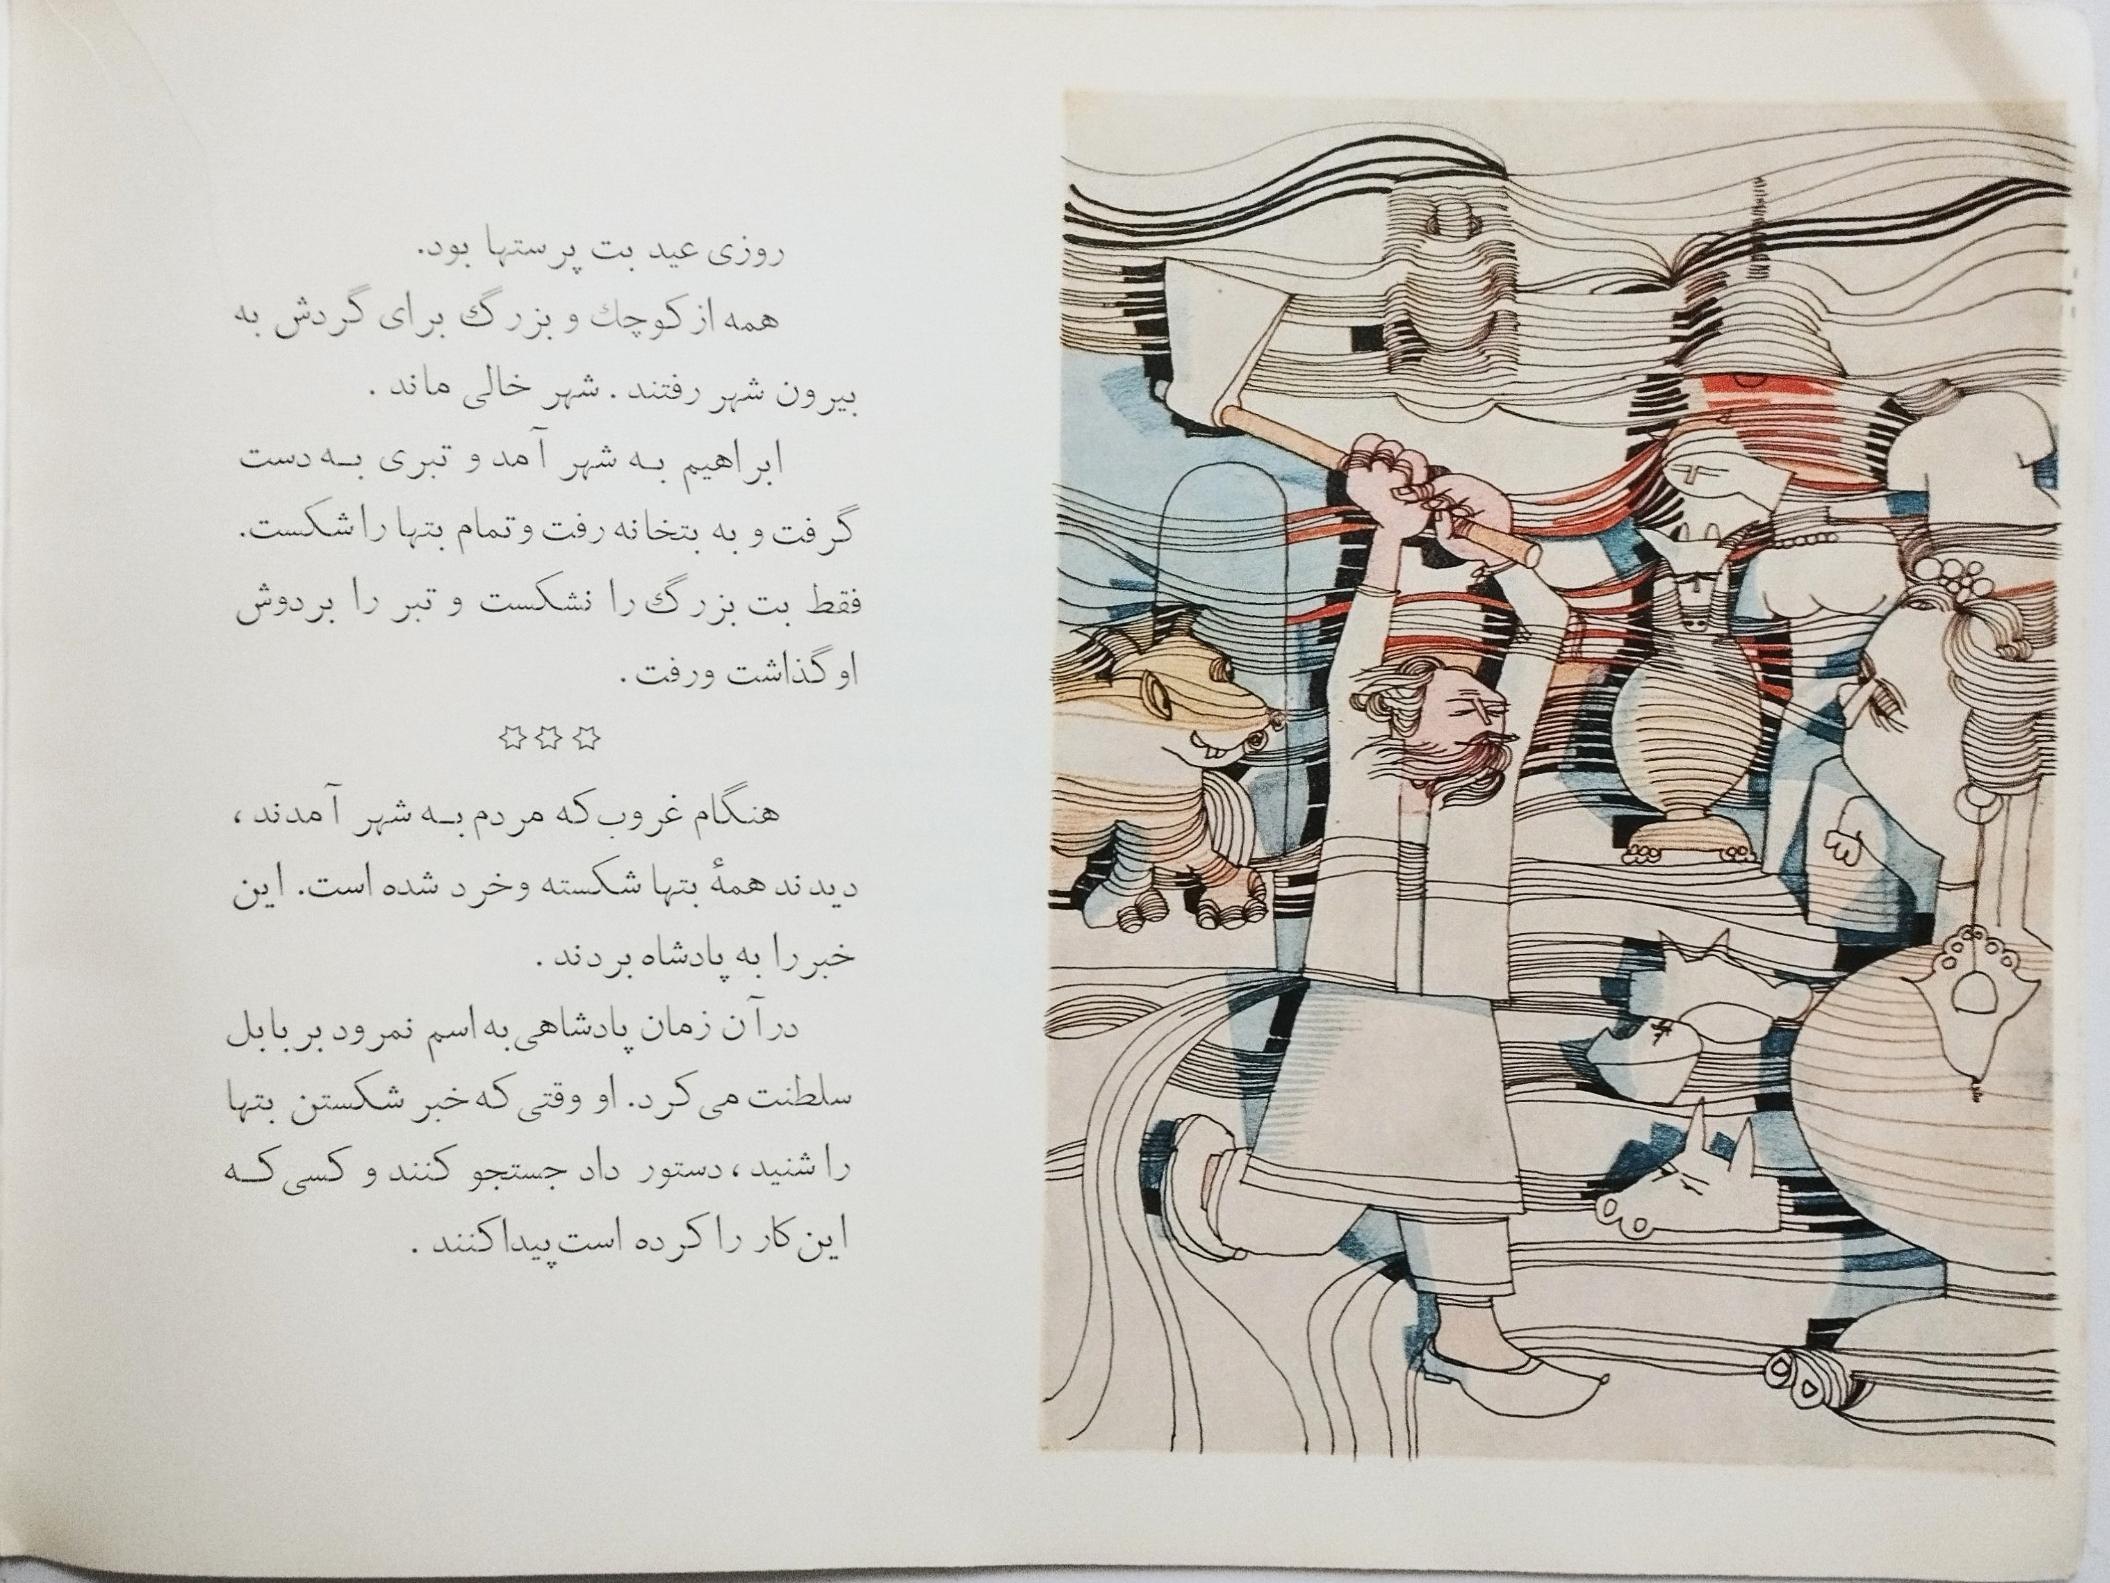 روزی عید بت پرستها بود.
همه از کوچك و بزرگ برای گردش به
بیرون شهر رفتند . شهر خالی ماند .
ابراهیم بـه شهر آمد و تبری بـه دست
گرفت و به بتخانه رفت و تمام بتها را شکست.
فقط بت بزرگ را نشکست و تبر را بردوش
او گذاشت ورفت .
هنگام غروب که مردم بـه شهر آمدند ،
دیدند همهٔ بتها شکسته وخرد شده است. این
خبر را به پادشاه بردند .
درآن زمان پادشاهی به اسم نمرود بر بابل
سلطنت می کرد. او وقتی که خبر شکستن بتها
را شنید ، دستور داد جستجو کنند و کسی کـه
این کار را کرده است پیدا کنند .